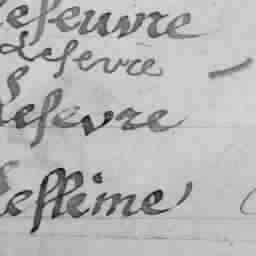 Lefeuvre
Lefevre
Lefevre
Lefféme